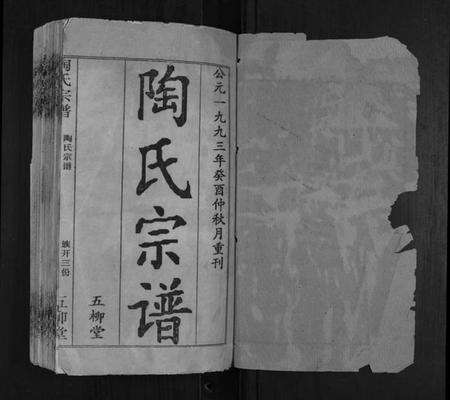 公元一九九三年癸酉仲秋月重刊
陶氏宗谱
五柳堂
陶氏宗谱
陶氏宗谱
五柳堂